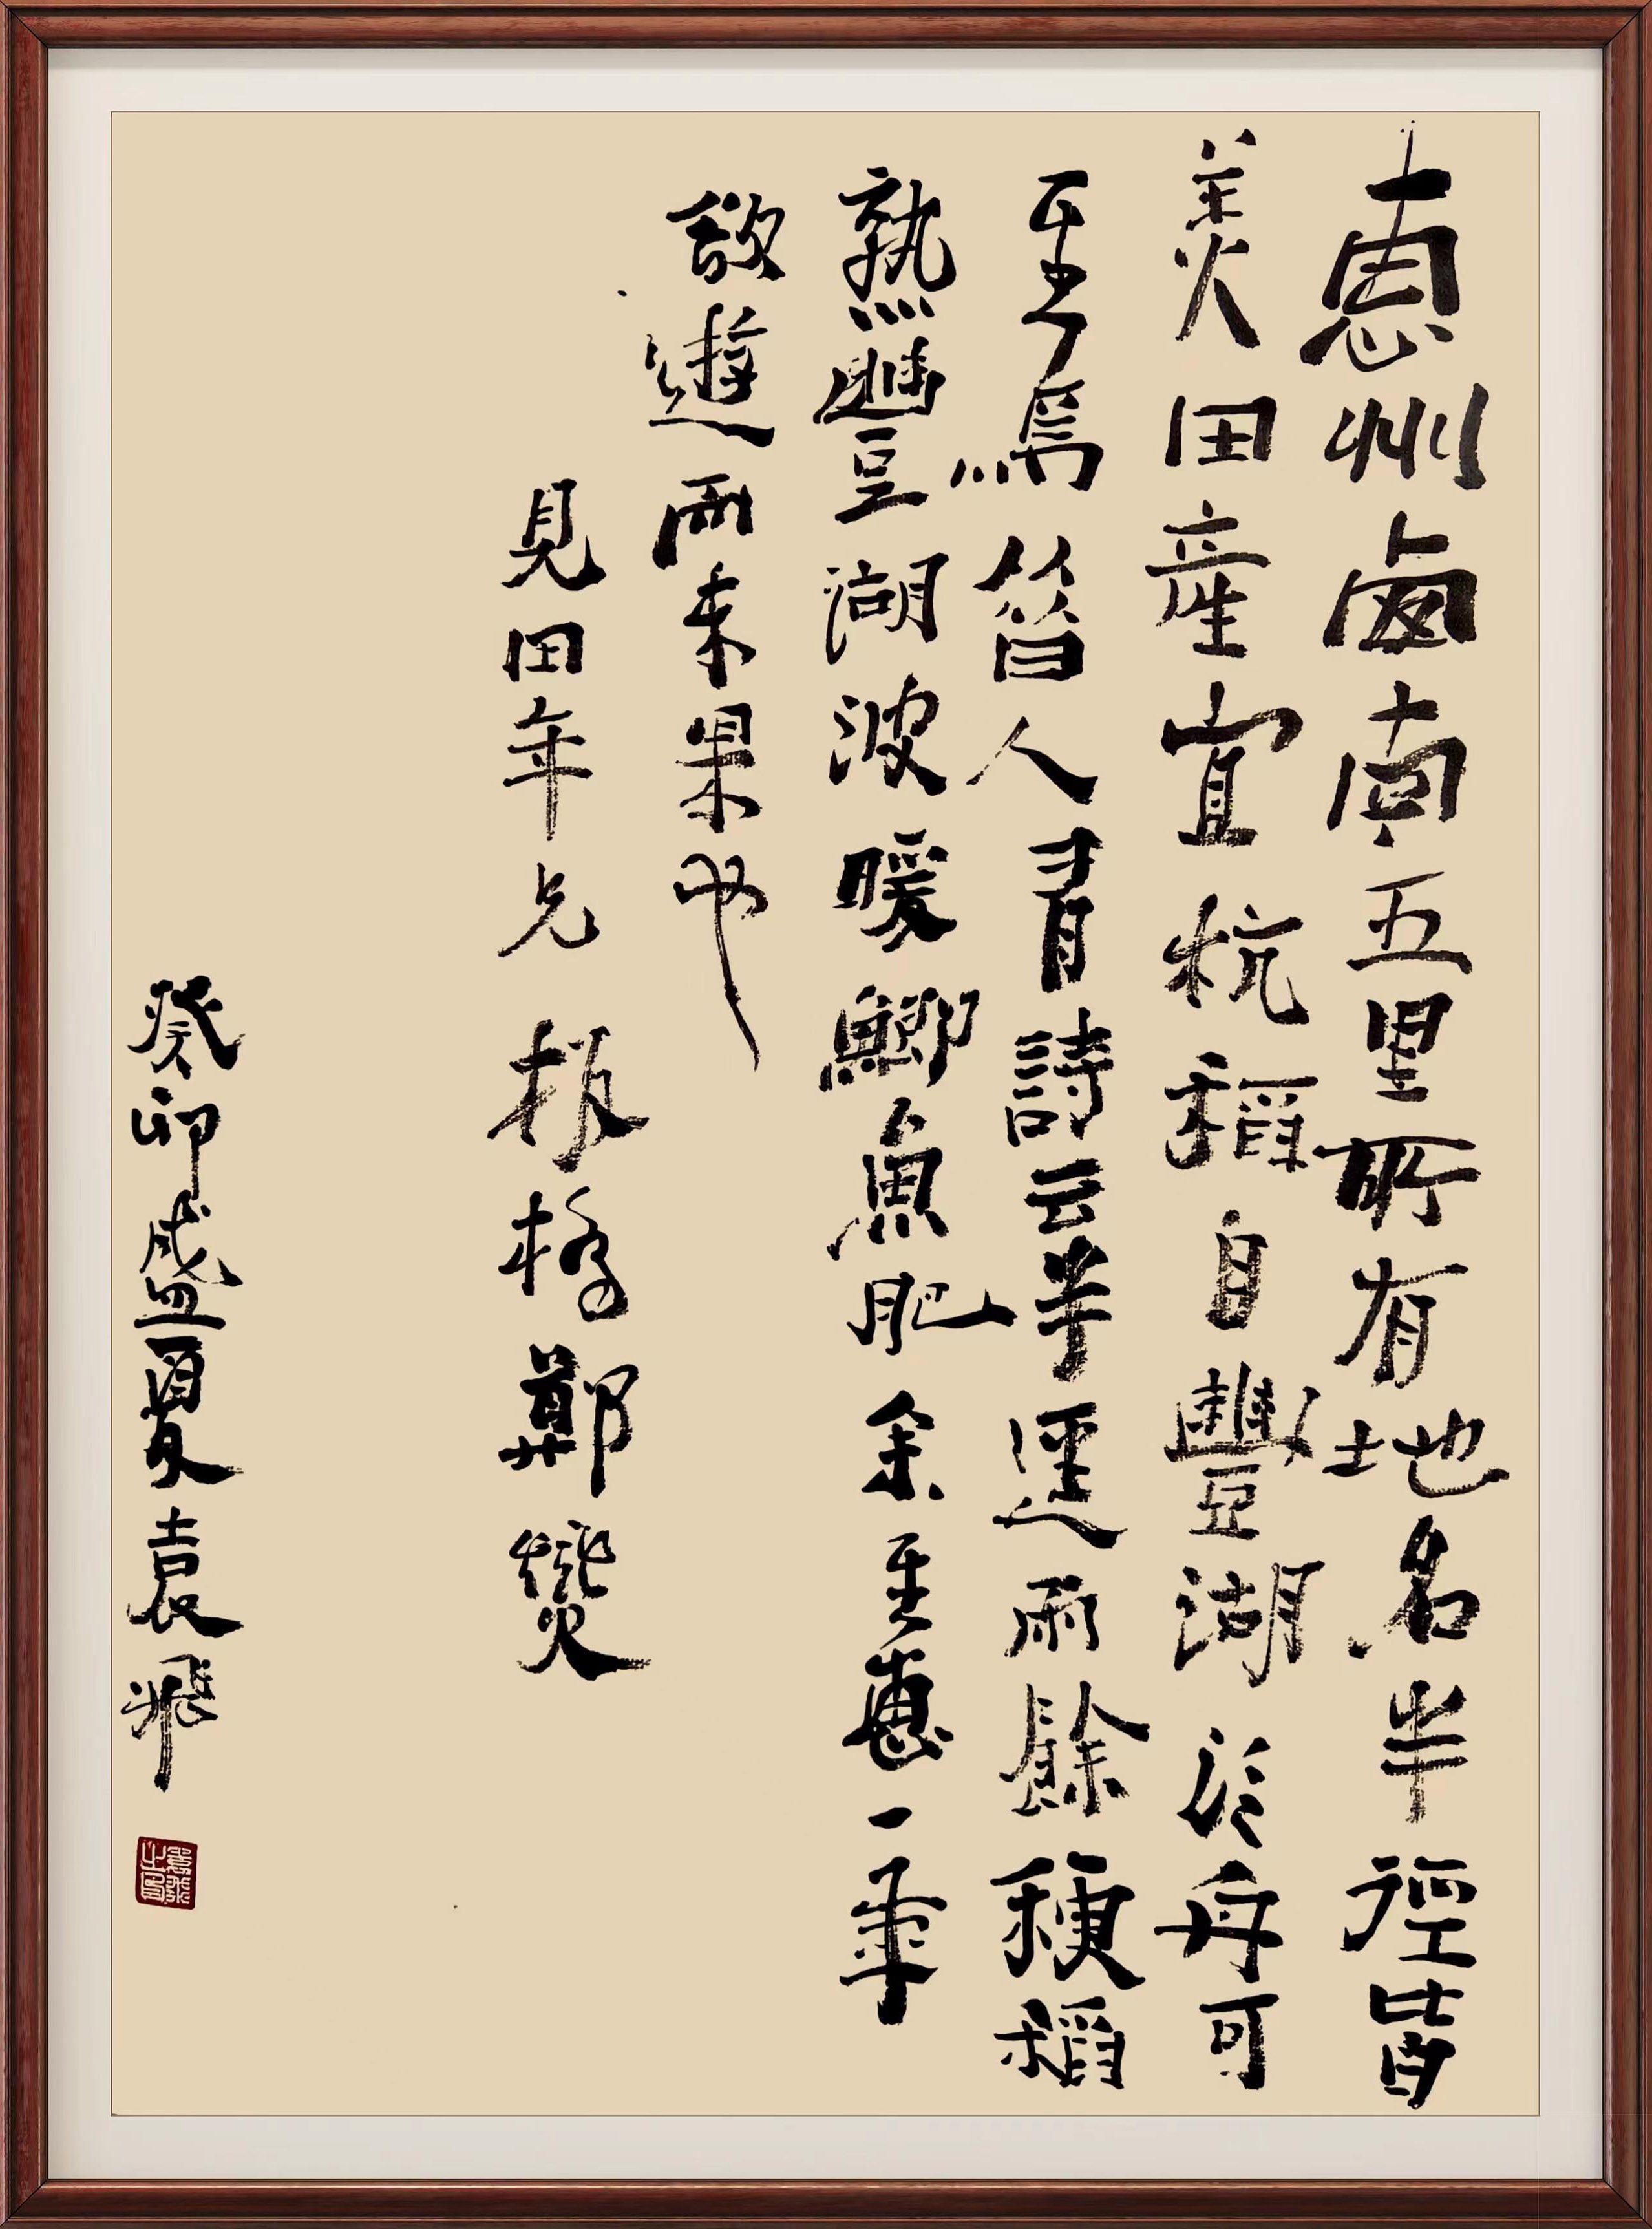 惠州西南五里所有地名半徑皆
美田產宜杭稻自豐湖於舟可
至焉昔人有詩云半逕雨餘稉稻
熟豐湖波暖鯽魚肥余至惠一年
欲遊而未果也
見田年兄 板橋鄭燮
癸卯盛夏袁飛